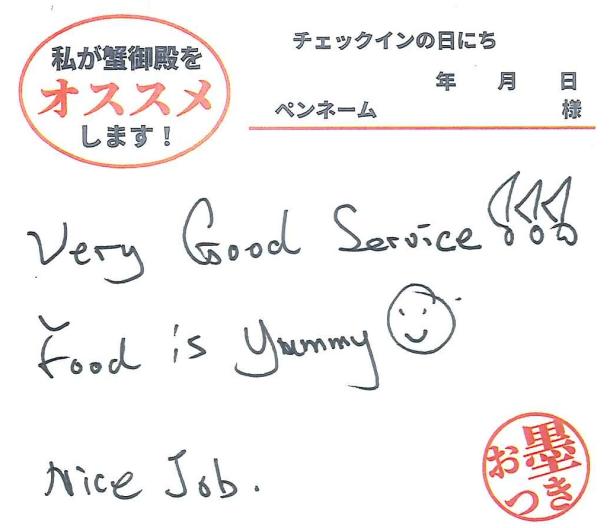 私が蟹御殿を
オススメ
します！
チェックインの日にち
年 月 日
ペンネーム 様
Very Good Service!!!
Food is Yummy
Nice Job.
お墨
つき